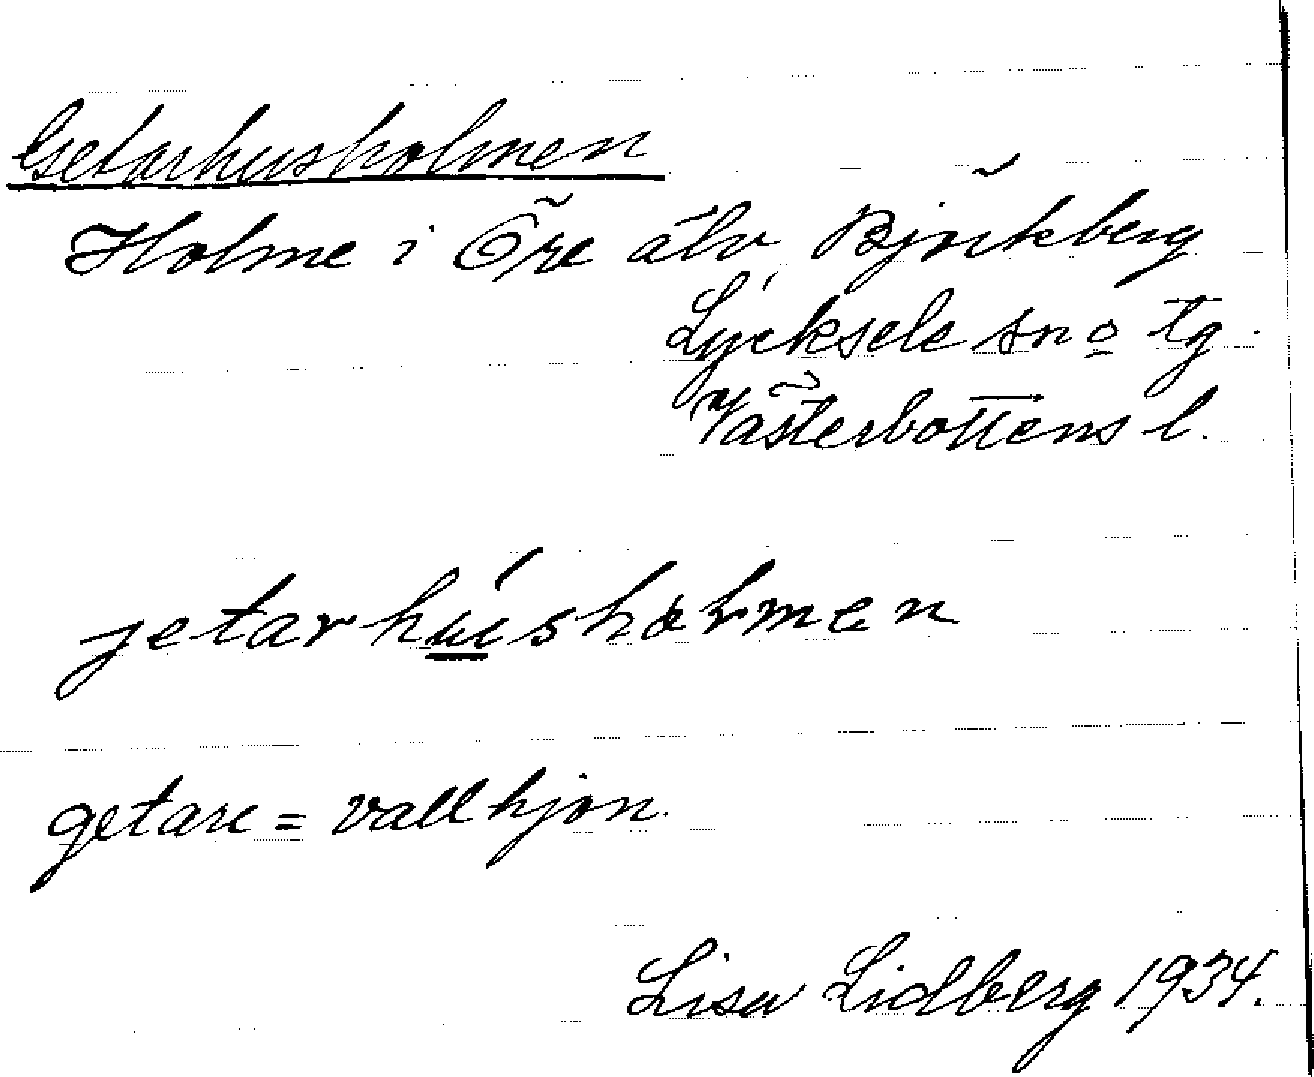 Getarhusholmen
Holme i Öre älv Björkberg
Lycksele sn o tg.
Västerbottens l.
jetarhúsholmen
getare = vallhjon.
Lisa Lidberg 1934.